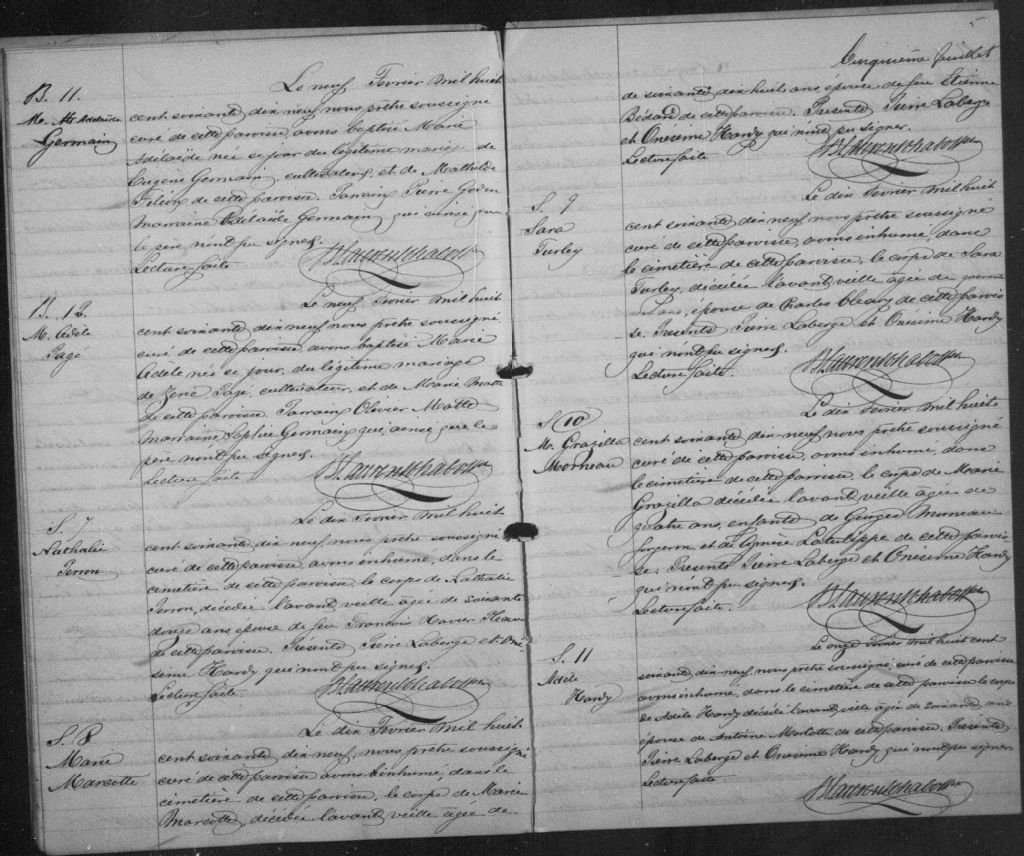 B. 11.
M. M. Adelaïde
Germain
Le neuf Fevrier mil huit
cent soixante dix neuf nous prêtre soussigné
curé de cette paroisse avons baptisé Marie
Adelaïde née ce jour du légitime mariage de
Eugène Germain, cultivateur, et de Mathilde
de cette paroisse. Parrain Pierre Godin
marraine Adelaïde Germain qui ainsi que
le père n'ont pu signer.
Lecture faite
B. 12.
M. Adèle
Pagé
Le neuf Fevrier mil huit
cent soixante dix neuf nous prêtre soussigné
curé de cette paroisse avons baptisé Marie
Adèle née ce jour, du légitime mariage
de Pagé, cultivateur, et de Marie Matte
de cette paroisse. Parrain Olivier Matte
marraine Sophie Germain qui, ainsi que le
père n'ont pu signer.
Lecture faite
S. 7
Nathalie
Perron
Le dix Fevrier mil huit
cent soixante dix neuf nous prêtre soussigné
curé de cette paroisse, avons inhumé, dans le
cimetière de cette paroisse, le corps de Nathalie
Perron, décédée l'avant veille agée de soixante
douze ans, épouse de feu François Xavier
de cette paroisse. Présents Pierre Laberge et Oné
sime Hardy qui n'ont pu signer.
Lecture faite
S. 8
Marie
Marcotte
Le dix Fevrier mil huit
cent soixante dix neuf, nous prêtre soussigné
curé de cette paroisse avons inhumé, dans le
cimetière de cette paroisse, le corps de Marie
Marcotte, décédée l'avant veille agée de
5
Cinquième feuillet
de soixante dix huit ans, épouse de feu Etienne
Bédard de cette paroisse. Présents Pierre Laberge
et Onésime Hardy qui n'ont pu signer.
Lecture faite
S. 9
Sara
Turley
Le dix Fevrier mil huit
cent soixante dix neuf nous prêtre soussigné
curé de cette paroisse, avons inhumé, dans
le cimetière de cette paroisse, le corps de Sara
Turley, décédée l'avant veille agée de
ans, épouse de Charles Cleary de cette parois
se. Présents Pierre Laberge et Onésime Hardy
qui n'ont pu signer.
Lecture faite.
S 10
M. Grazilla
Morneau
Le dix Fevrier mil huit
cent soixante dix neuf nous prêtre soussigné
curé de cette paroisse, avons inhumé, dans
le cimetière de cette paroisse, le corps de Marie
Grazilla décédée l'avant veille agée de
quatre ans, enfant de Georges Morneau
forgeron et de Agnès Latulippe de cette parois
se. Présents Pierre Laberge et Onésime Hardy
qui n'ont pu signer.
Lecture faite.
S. 11
Adèle
Hardy
Le onze Fevrier mil huit cent
soixante dix neuf, nous prêtre soussigné, curé de cette paroisse
avons inhumé, dans le cimetière de cette paroisse le corps
de Adèle Hardy décédée l'avant veille agée de soixante ans
épouse de Antoine de cette paroisse. Présents
Pierre Laberge et Onésime Hardy qui n'ont pu signer.
Lecture faite